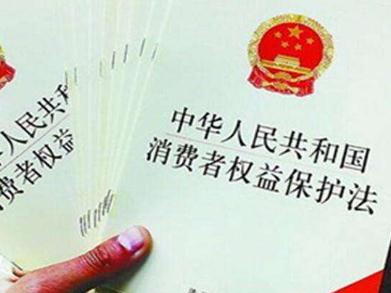 中华人民共和国
消费者权益保护法
中华人民共和
消费者权益